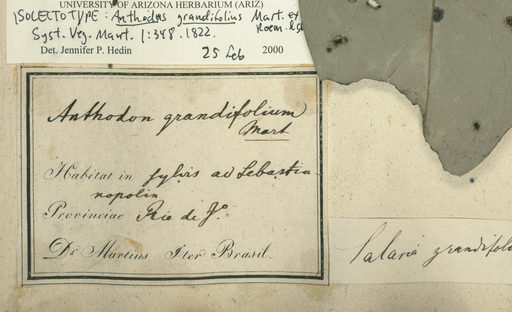 UNIVERSITY OF ARIZONA HERBARIUM (ARIZ)
ISOLECTOTYPE: Anthodus grandifolius Mart. ex
Syst. Veg. Mant. 1:348. 1822. Roem.
Det. Jennifer P. Hedin 25 Feb 2000
Anthodon grandifolium
Mart
Habitat in sylvis ad Sebastia-
nopolin
Provinciae Rio de J°.
Dr Martius Iter Brasil.
Salacia grandifoli